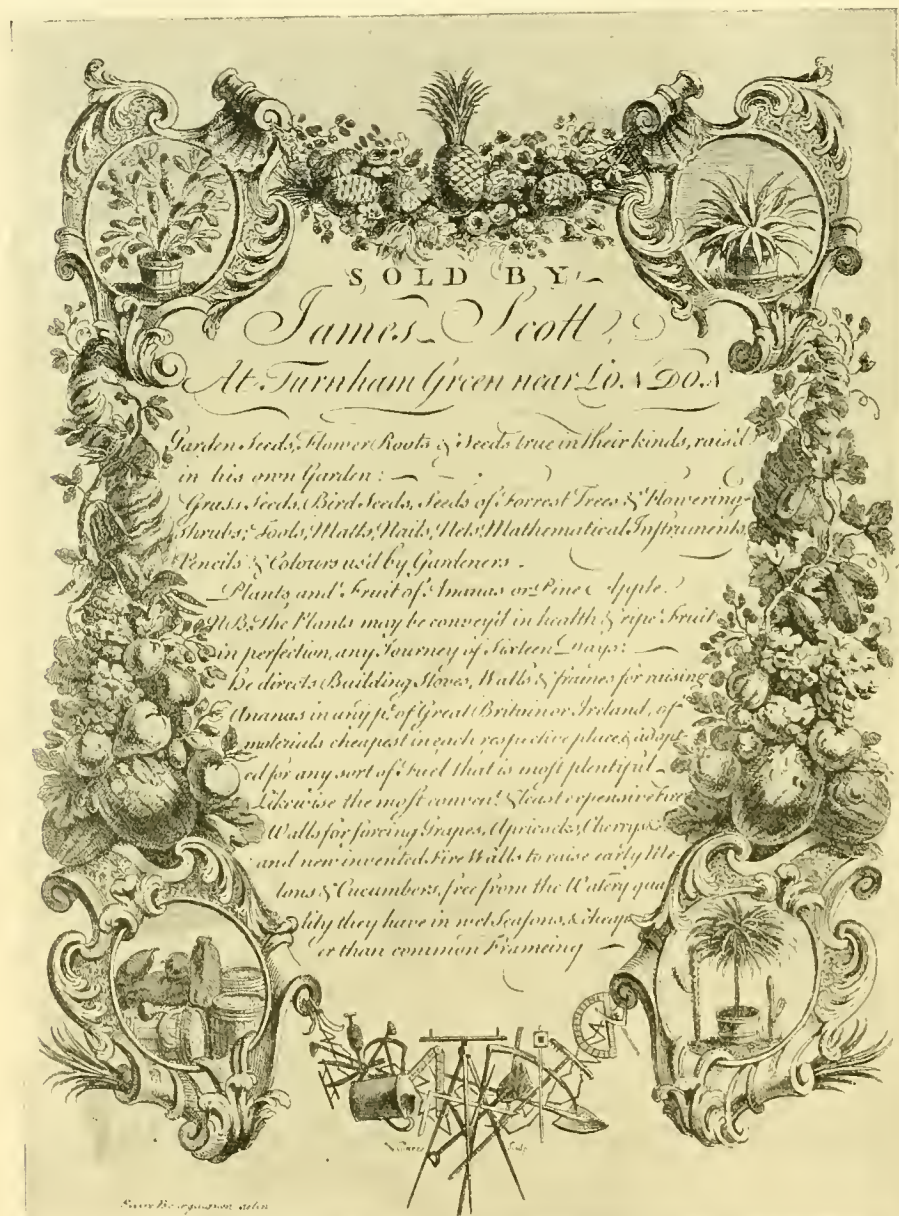 SOLD BY
James Scott,
At Turnham Green near LONDON
Garden Seeds, Flower Roots & Seeds true in their kinds, rais'd
in his own Garden:
Grass Seeds, Bird Seeds, Seeds of Forrest Trees & Flowering
Shrubs; Tools, Matts, Nails, Nets, Mathematical Instruments,
Pencils & Colours us'd by Gardeners.
Plants and Fruit of Ananas or Pine Apple.
N.B. the Plants may be convey'd in health & ripe Fruit
in perfection, any Journey of Sixteen Days:
he directs Building Stoves, Walls & frames for raising
Ananas in any pt. of Great Britain or Ireland, of
materials cheapest in each respective place, & adapt-
ed for any sort of Fuel that is most plentiful
Likewise the most convent. & least expensive Fire
Walls for forcing Grapes, Apricocks, Cherrys &c
and new invented Fire Walls to raise early Me-
lons & Cucumbers, free from the Watery qua
lity they have in wet Seasons, & cheap
er than common Frameing
sculp
delin